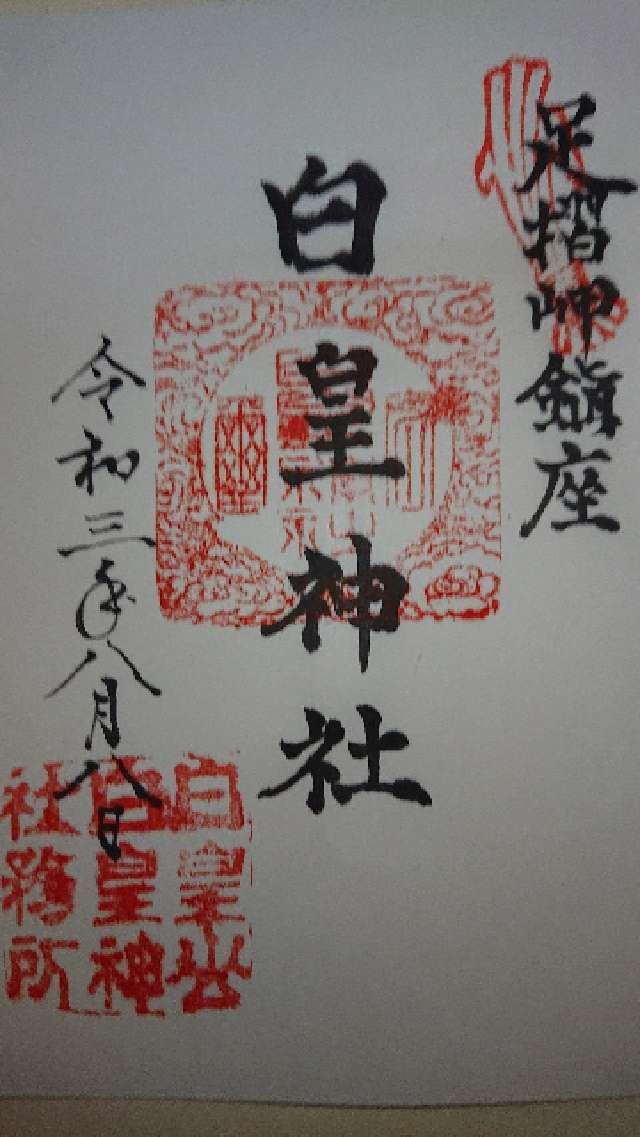 足摺岬鎮座
白皇神社
令和三年八月八日
白皇山
白皇神
社務所